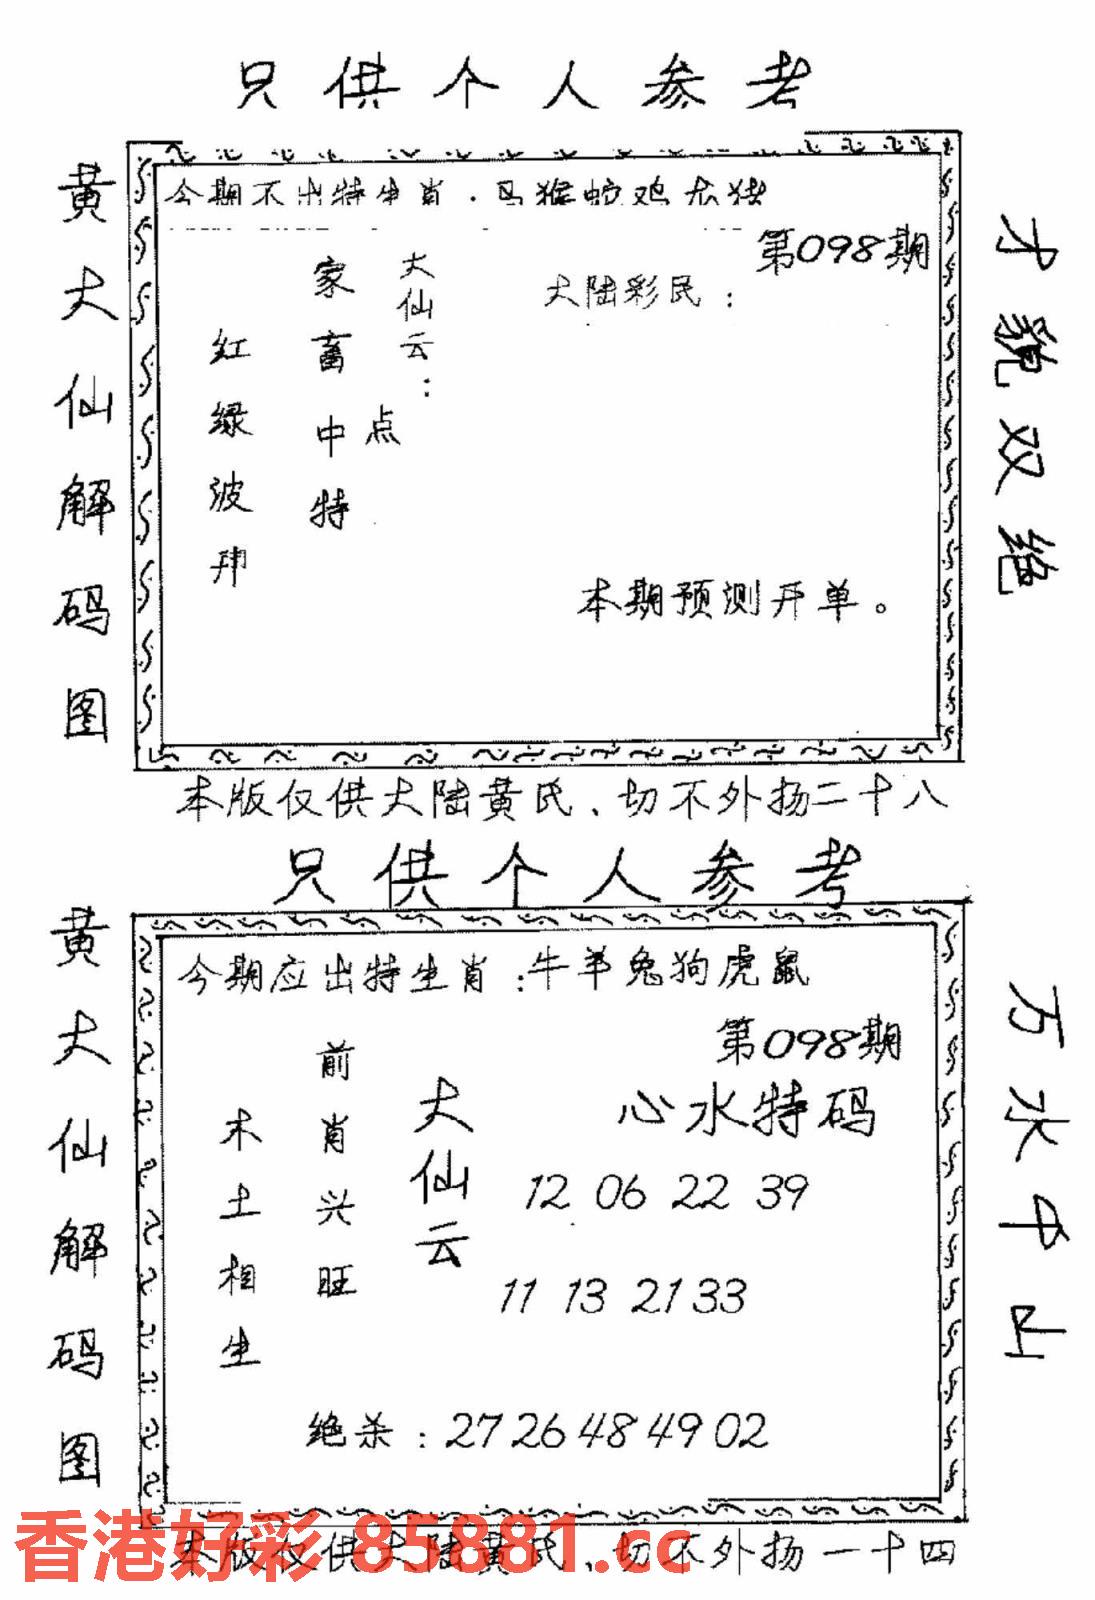 只供个人参考
黄大仙解码图
今期不出特生肖:马猴蛇鸡龙猪
第098期
大陆彩民:
大仙云:
点
家畜中特
红绿波
本期预测开单。
才貌双绝
本版仅供大陆黄氏、切不外扬二十八
只供个人参考
黄大仙解码图
今期应出特生肖:牛羊兔狗虎鼠
第098期
心水特码
大仙云
前肖兴旺
木土相生
12 06 22 39
11 13 21 33
绝杀:27 26 48 49 02
万水千山
本版仅供大陆黄氏、切不外扬一十四
香港好彩 85881.cc